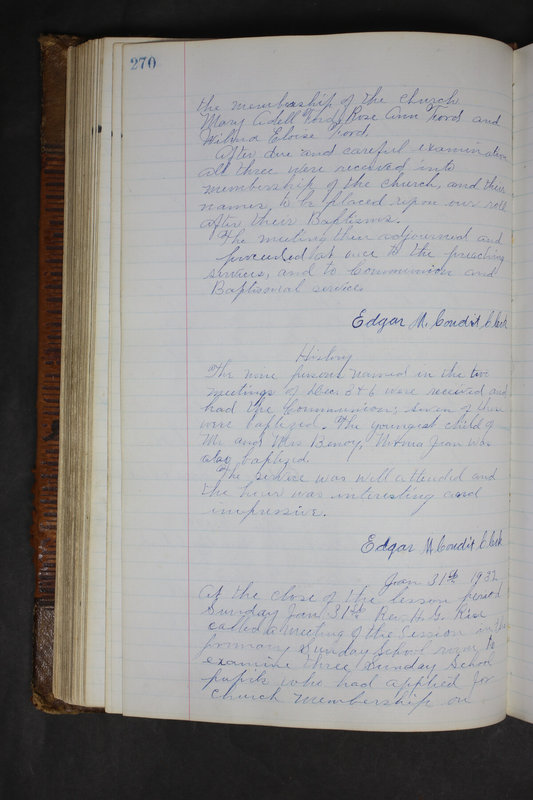 270
the membership of the church
Mary Adell Ford, Rose Ann Ford and
Wilma Eloise Ford
After due and careful examination
all three were received into
membership of the church, and their
names to be placed upon our roll
after their Baptisms.
The meeting then adjourned and
proceeded at once to the preaching
services, and to Communion and
Baptismal services
Edgar M. Condit, Clerk
History
The nine persons named in the two
meetings of Dec. 3 & 6 were received and
had the Communion; seven of them
were baptized. The youngest child of
Mr and Mrs Benoy, Norma Jean was
also baptized.
The service was well attended and
the hour was interesting and
impressive.
Edgar M Condit Clerk
Jan 31st 1932
At the close of the lesson period
Sunday Jan 31st Rev. H. G. Rise
called a meeting of the Session in the
primary Sunday School room to
examine three Sunday School
pupils who had applied for
church membership on